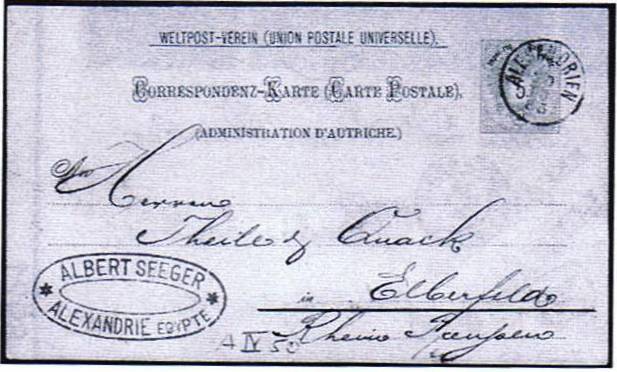 WELTPOST-VEREIN (UNION POSTALE UNIVERSELLE).
CORRESPONDENZ-KARTE (CARTE POSTALE).
(ADMINISTRATION D'AUTRICHE.)
ALEXANDRIEN
An
Herren
Theile & Quack
in Elberfeld
Rhein Preussen
ALBERT SEEGER
ALEXANDRIE EGYPTE